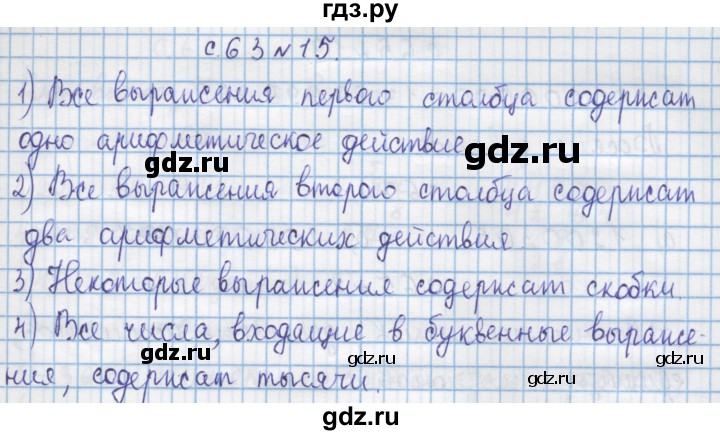 гдз.ру
с.63 №15.
1) Все выражения первого столбца содержат
одно арифметическое действие.
gdz.ru
gdz.ru
2) Все выражения второго столбца содержат
два арифметических действия.
3) Некоторые выражения содержат скобки.
4) Все числа, входящие в буквенные выраже-
gdz.ru
gdz.ru
gdz.ru
ния, содержат тысячи.
gdz.ru